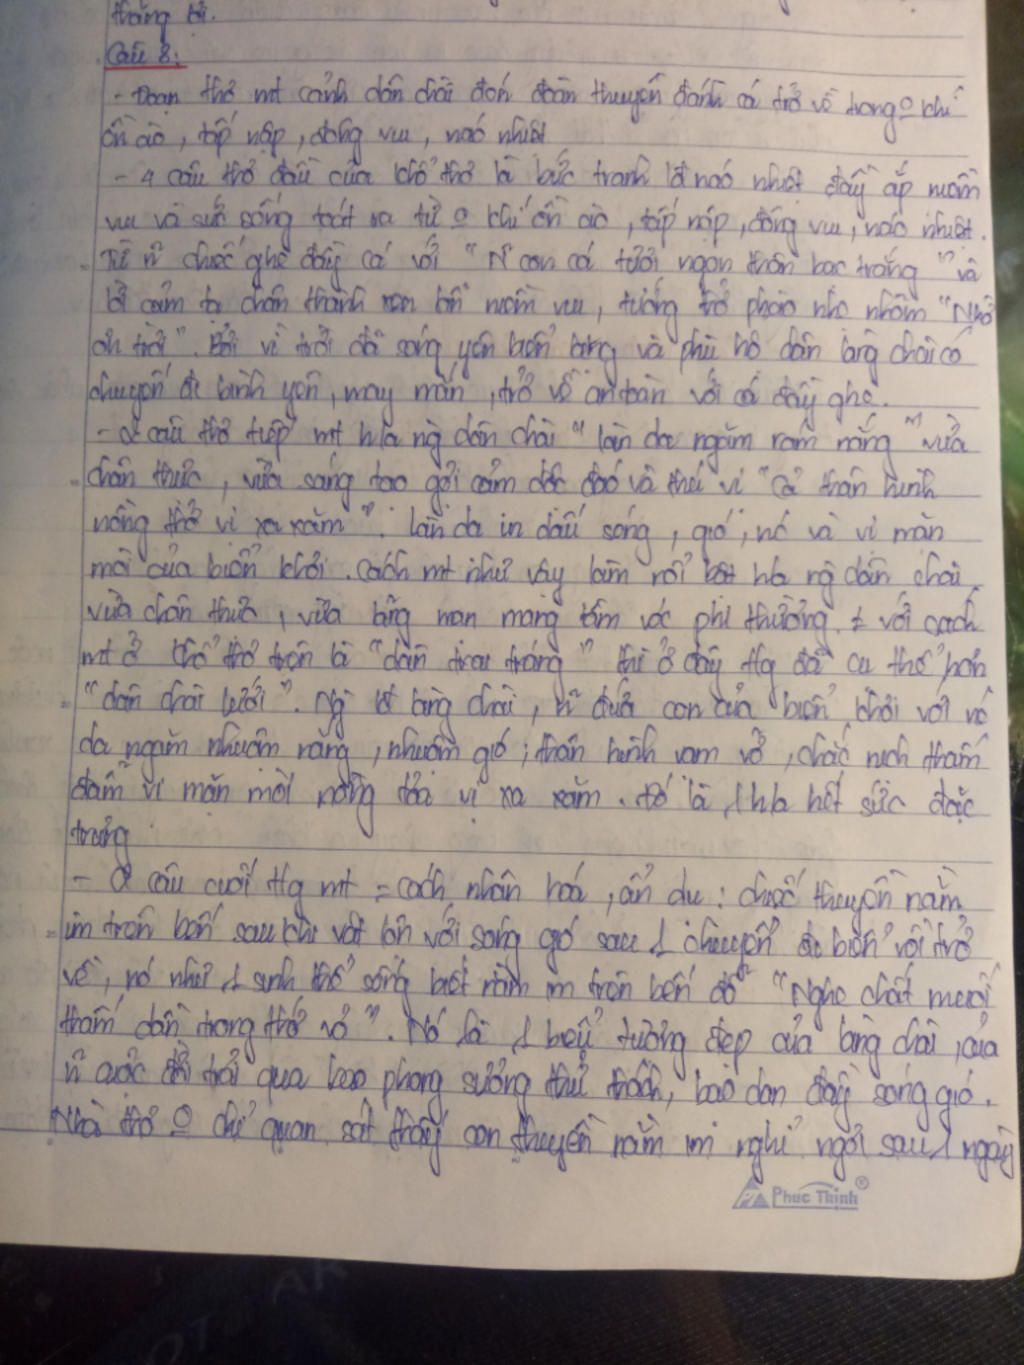 thắng lợi.
Câu 8:
- Đoạn thơ mt cảnh dân chài đón đoàn thuyền đánh cá trở về trong o khí
ồn ào, tấp nập, đông vui, náo nhiệt
- 4 câu thơ đầu của khổ thơ là bức tranh lđ náo nhiệt đầy ắp niềm
vui và sức sống toát ra từ o khí ồn ào, tấp nập, đông vui, náo nhiệt.
Từ n chiếc ghe đầy cá với "N con cá tươi ngon thân bạc trắng" và
lời cảm tạ chân thành niềm vui, tưởng nhỏ "Nhờ
ơn trời". Bởi vì trời đã sóng yên biển lặng và phù hộ dân làng chài có
chuyến đi bình yên, may mắn, trở về an toàn với cá đầy ghe.
- 2 câu thơ tiếp mt h/a ng dân chài "làn da ngăm rám nắng" vừa
chân thực, vừa sáng tạo gợi cảm độc đáo và thú vị "Cả thân hình
nồng thở vị xa xăm". Làn da in dấu sóng, gió, và vị mặn
mòi của biển khơi. Cách mt như vậy làm nổi bật h/a ng dân chài
vừa chân thực, vừa lãng mạn mang tầm vóc phi thường. ≠ với cách
mt ở khổ thơ trên là "dân trai tráng" thì ở đây tg đã cụ thể hơn
"dân chài lưới". Ng lđ làng chài, n đứa con của biển khơi với
da ngăm nhuốm nắng, nhuốm gió; thân hình vạm vỡ, chắc nịch thấm
đẫm vị mặn mòi nồng tỏa vị xa xăm. Đó là 1 h/a hết sức đặc
trưng
- 2 câu cuối tg mt = cách nhân hoá, ẩn dụ: chiếc thuyền nằm
im trên bến sau khi vật lộn với sóng gió sau 1 chuyến đi biển vời trở
về, nó như 1 sinh thể sống biết nằm im trên bến để "Nghe chất muối
thấm dần trong thớ vỏ". Nó là 1 biểu tượng đẹp của làng chài, của
n cuộc đời trải qua bao phong sương thử thách, bao dan đầy sóng gió.
Nhà thơ o chỉ quan sát thấy con thuyền nằm im nghỉ ngơi sau 1 ngày
Phuc Thinh®